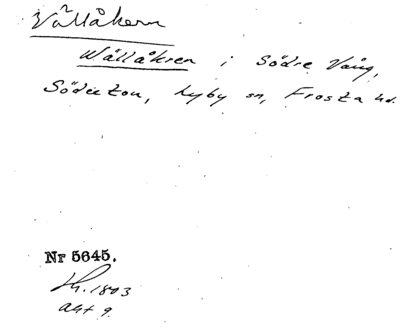 Vållåkern
Wållåkren i Södre Vång,
Södertou, Lyby sn, Frosta hd.
Nr 5645.
Lh. 1803
akt 9